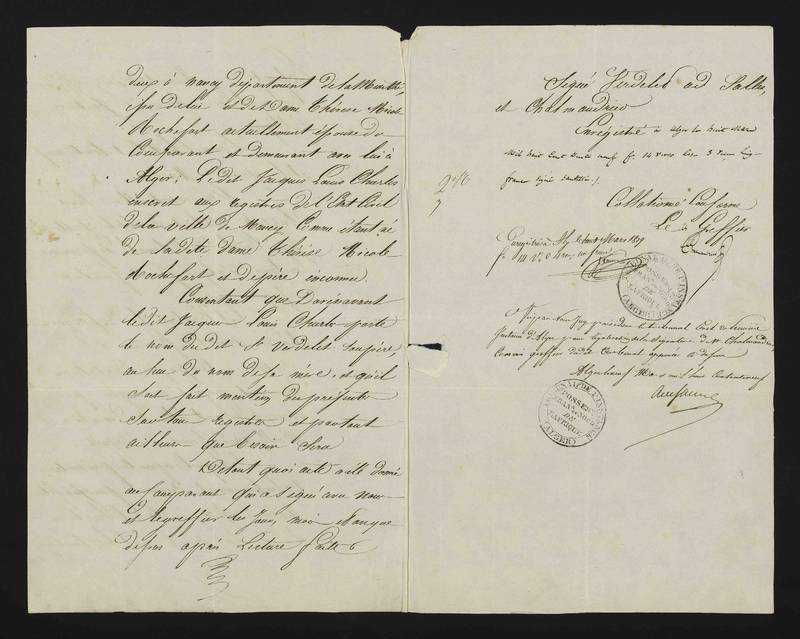 deux à Nancy département de la Meurthe,
fils de lui et de Dame Thérèse Nicole
Rochefort actuellement épouse du
Comparant et demeurant avec lui à
Alger; Ledit Jacques Louis Charles
inscrit aux registres de l'Etat Civil
de la ville de Nancy Comme étant né
de ladite dame Thérèse Nicole
Rochefort et de père inconnu.
Consentant que Dorénavant
ledit Jacques Louis Charles porte
le nom du dit Sr Verdelet son père,
au lieu du nom de sa mère et qu'il
soit fait mention des présentes
sur tous registres et partout
ailleurs que besoin sera
De tout quoi acte a été donné
au Comparant qui a signé avec nous
et le greffier les jour, mois et an que
dessus après Lecture faite
Signé Verdelet ad Salles,
et Chalmandrier
Enregistré à Alger le huit Mars
Mil huit Cent trente neuf fo 14 verso Case 3
francs signé
Collationné Conforme
Le Greffier
Enregistré à Alger le Mars 1839
fo 14 Vo
Vu par Nous Juge président le tribunal Civil de Première
Instance d'Alger pour légalisation de la Signature de Mr Chalmandrier,
Commis greffier dudit tribunal apposée ci dessus
Alger le neuf Mars mil huit Cent trente neuf
POSSESS.
FRANÇ. NORD
DE
L'AFRIQUE
(ALGER)
POSSESS.
FRANÇ. NORD
DE
L'AFRIQUE
(ALGER)